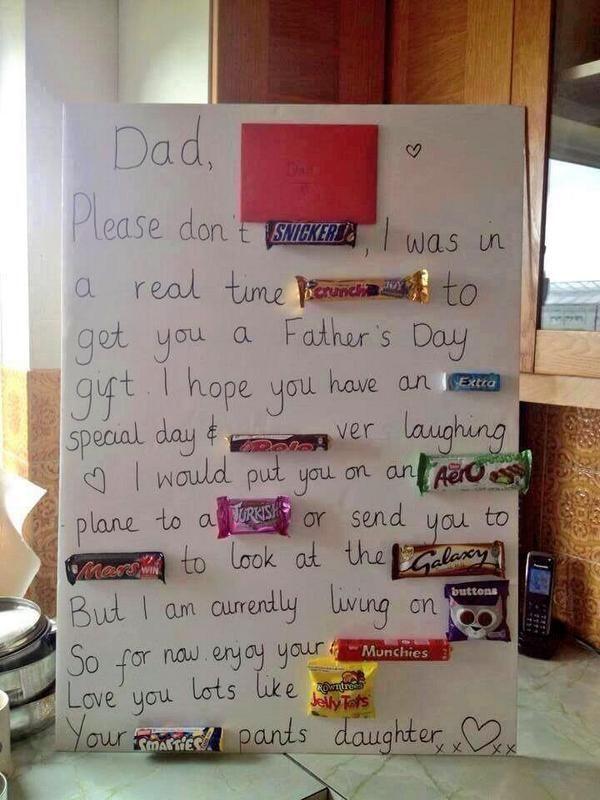 Dad, Dad
Please don't SNICKERS, I was in
a real time crunchie to
get you a Father's Day
gift. I hope you have an Extra
special day & Rolo ver laughing
I would put you on an Aero
plane to a TURKISH or send you to
Mars WIN to look at the Galaxy
But I am currently living on buttons
So for now enjoy your Munchies
Love you lots like Rowntree's Jelly Tots
Your SMARTIES pants daughter xx xx